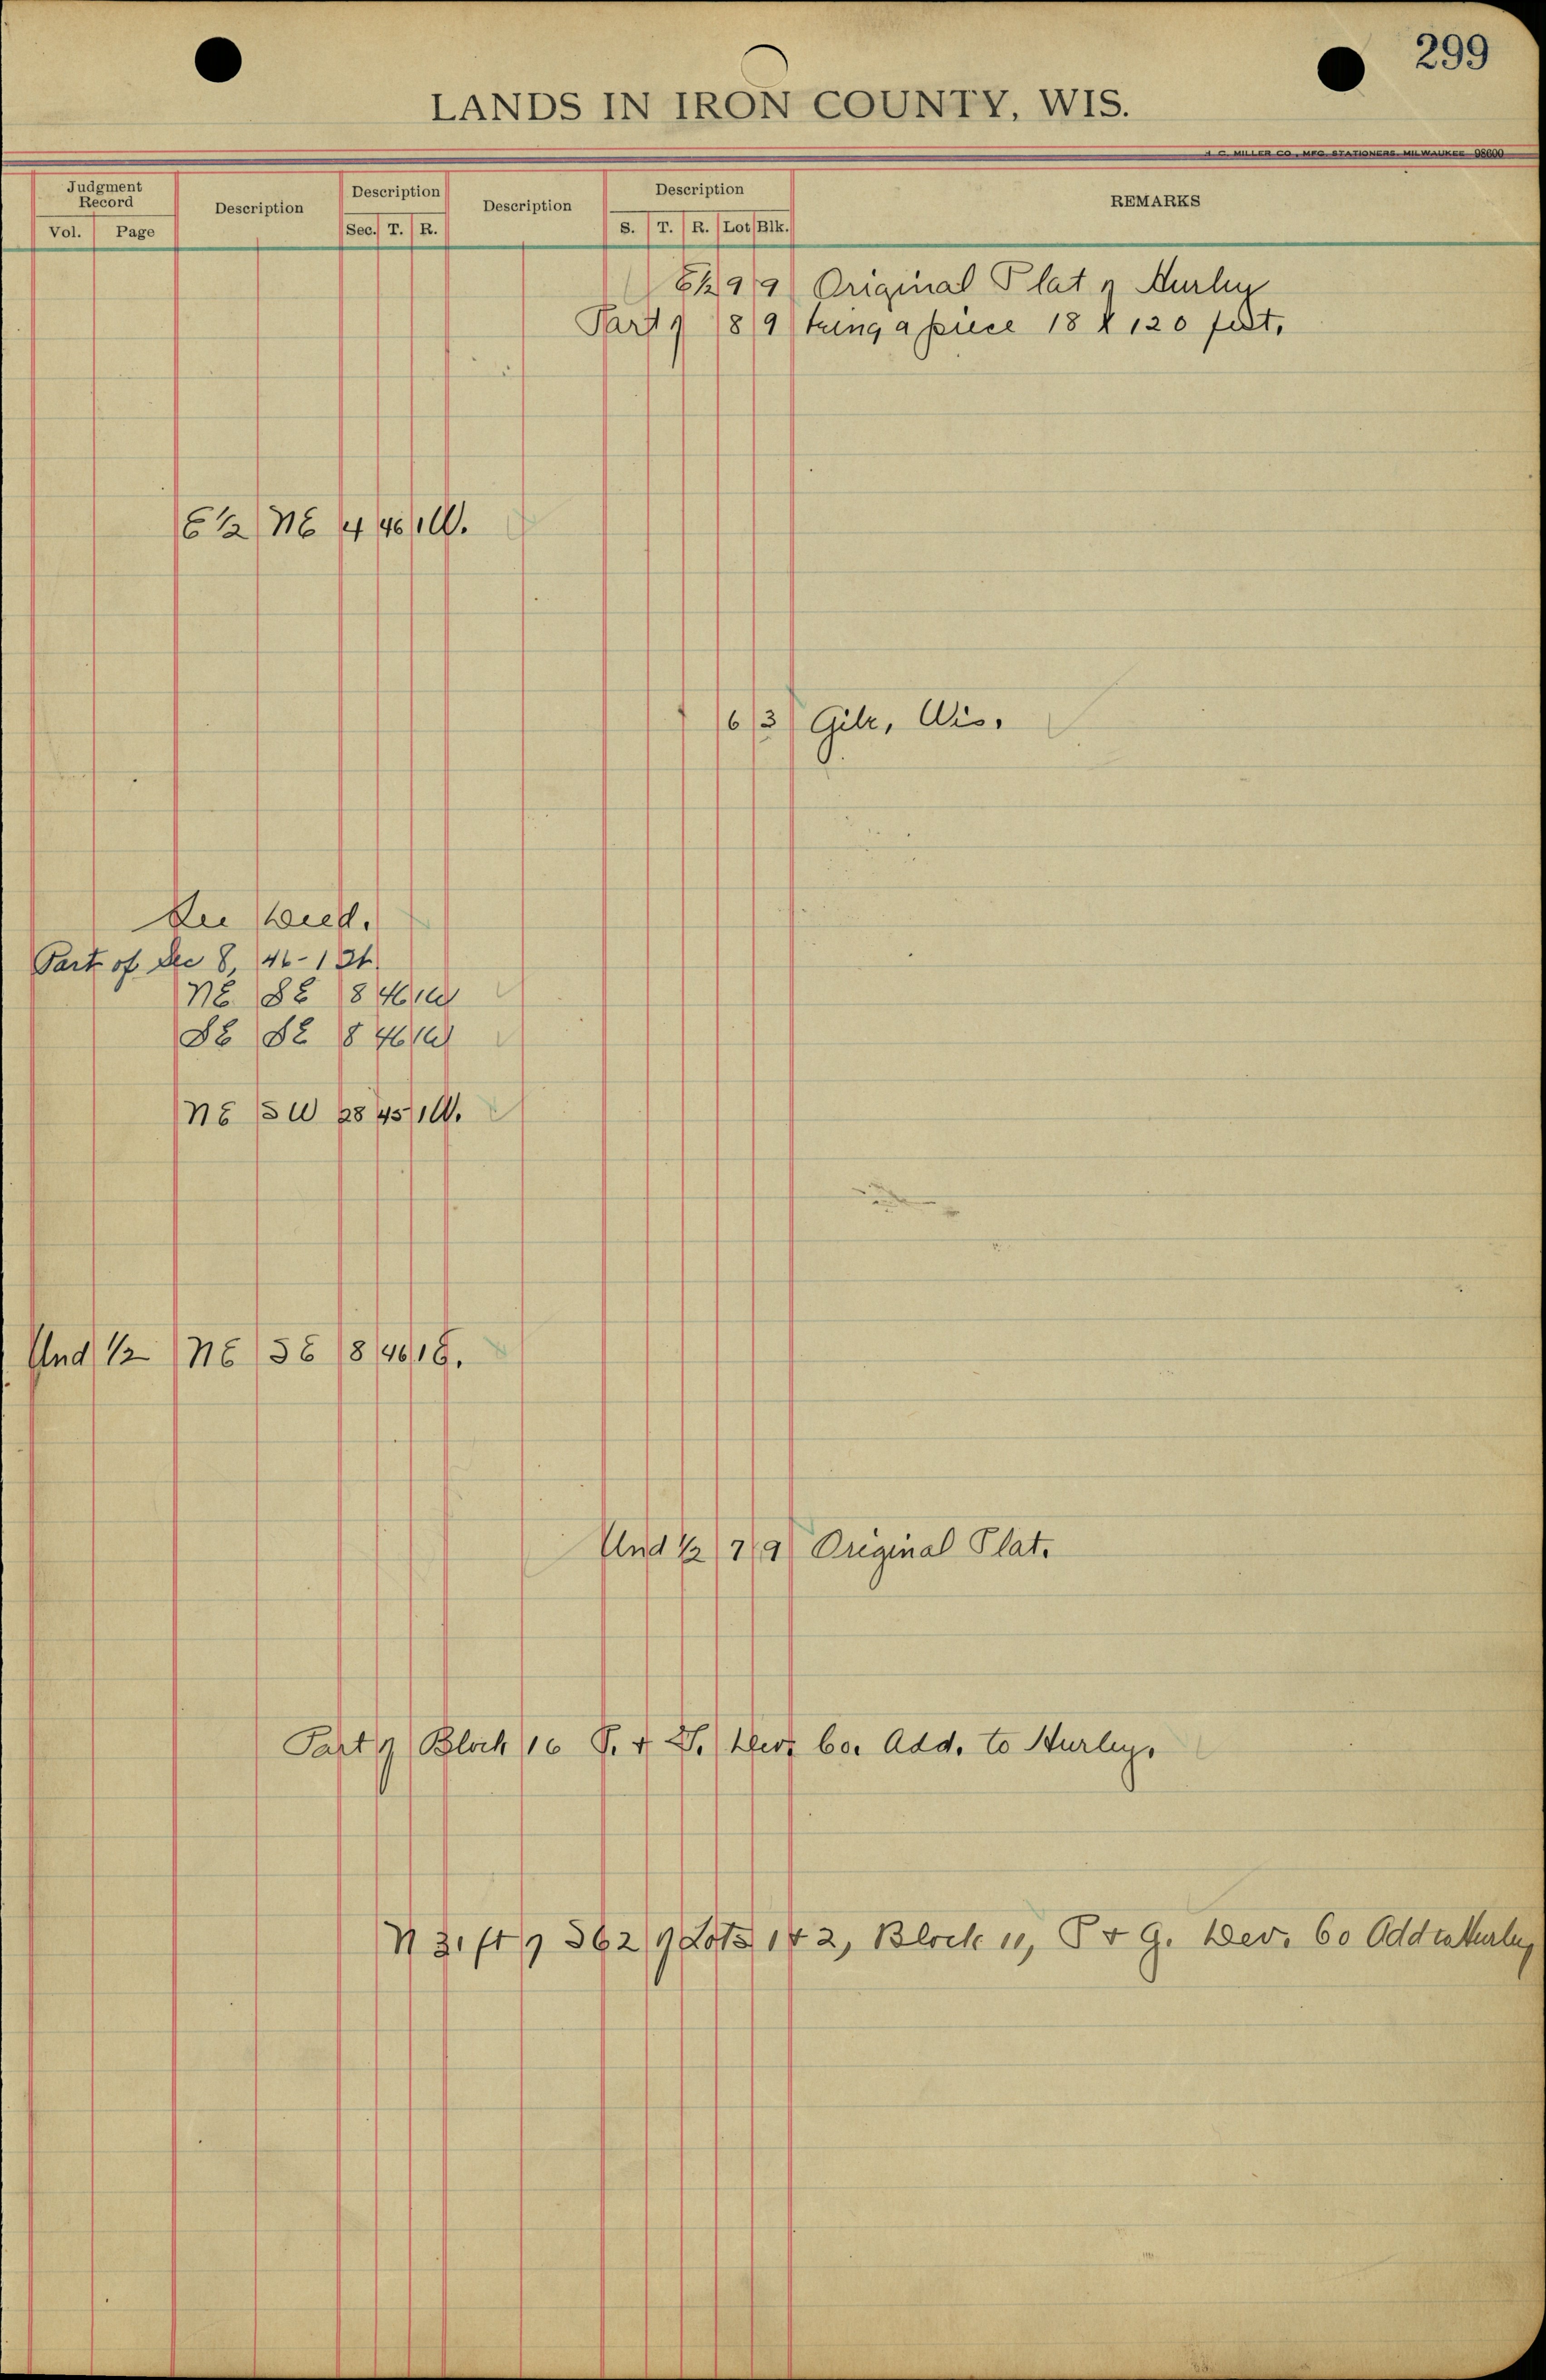 299
LANDS IN IRON COUNTY, WIS.
H. C. MILLER CO., MFG. STATIONERS, MILWAUKEE 98600
Judgment Record Description Description Description Description REMARKS
Vol. Page Sec. T. R. S. T. R. Lot Blk.
E½ 9 9 Original Plat of Hurley
Part of 8 9 being a piece 18 X 120 feet.
E ½ NE 4 46 1 W.
6 3 Gile, Wis.
See Deed.
Part of Sec 8, 46-1
NE SE 8 46 1 W
SE SE 8 46 1 W
NE SW 28 45 1 W.
Und ½ NE SE 8 46 1 E.
Und ½ 7 9 Original Plat.
Part of Block 16 P. & G. Dev. Co. Add. to Hurley.
N 31 ft of S62 of Lots 1 & 2, Block 11, P & G. Dev. Co Add to Hurley